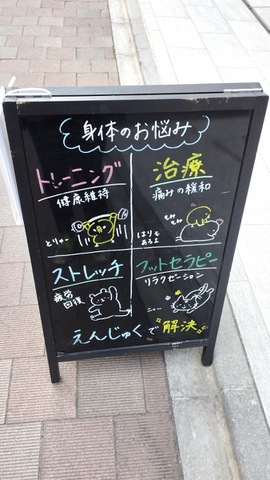 身体のお悩み
トレーニング
健康維持
とりゃー
治療
痛みの緩和
もみ
もみ
はりも
あるよ
ストレッチ
疲労
回復
フットセラピー
リラクゼーション
えんじゅくで"解決"